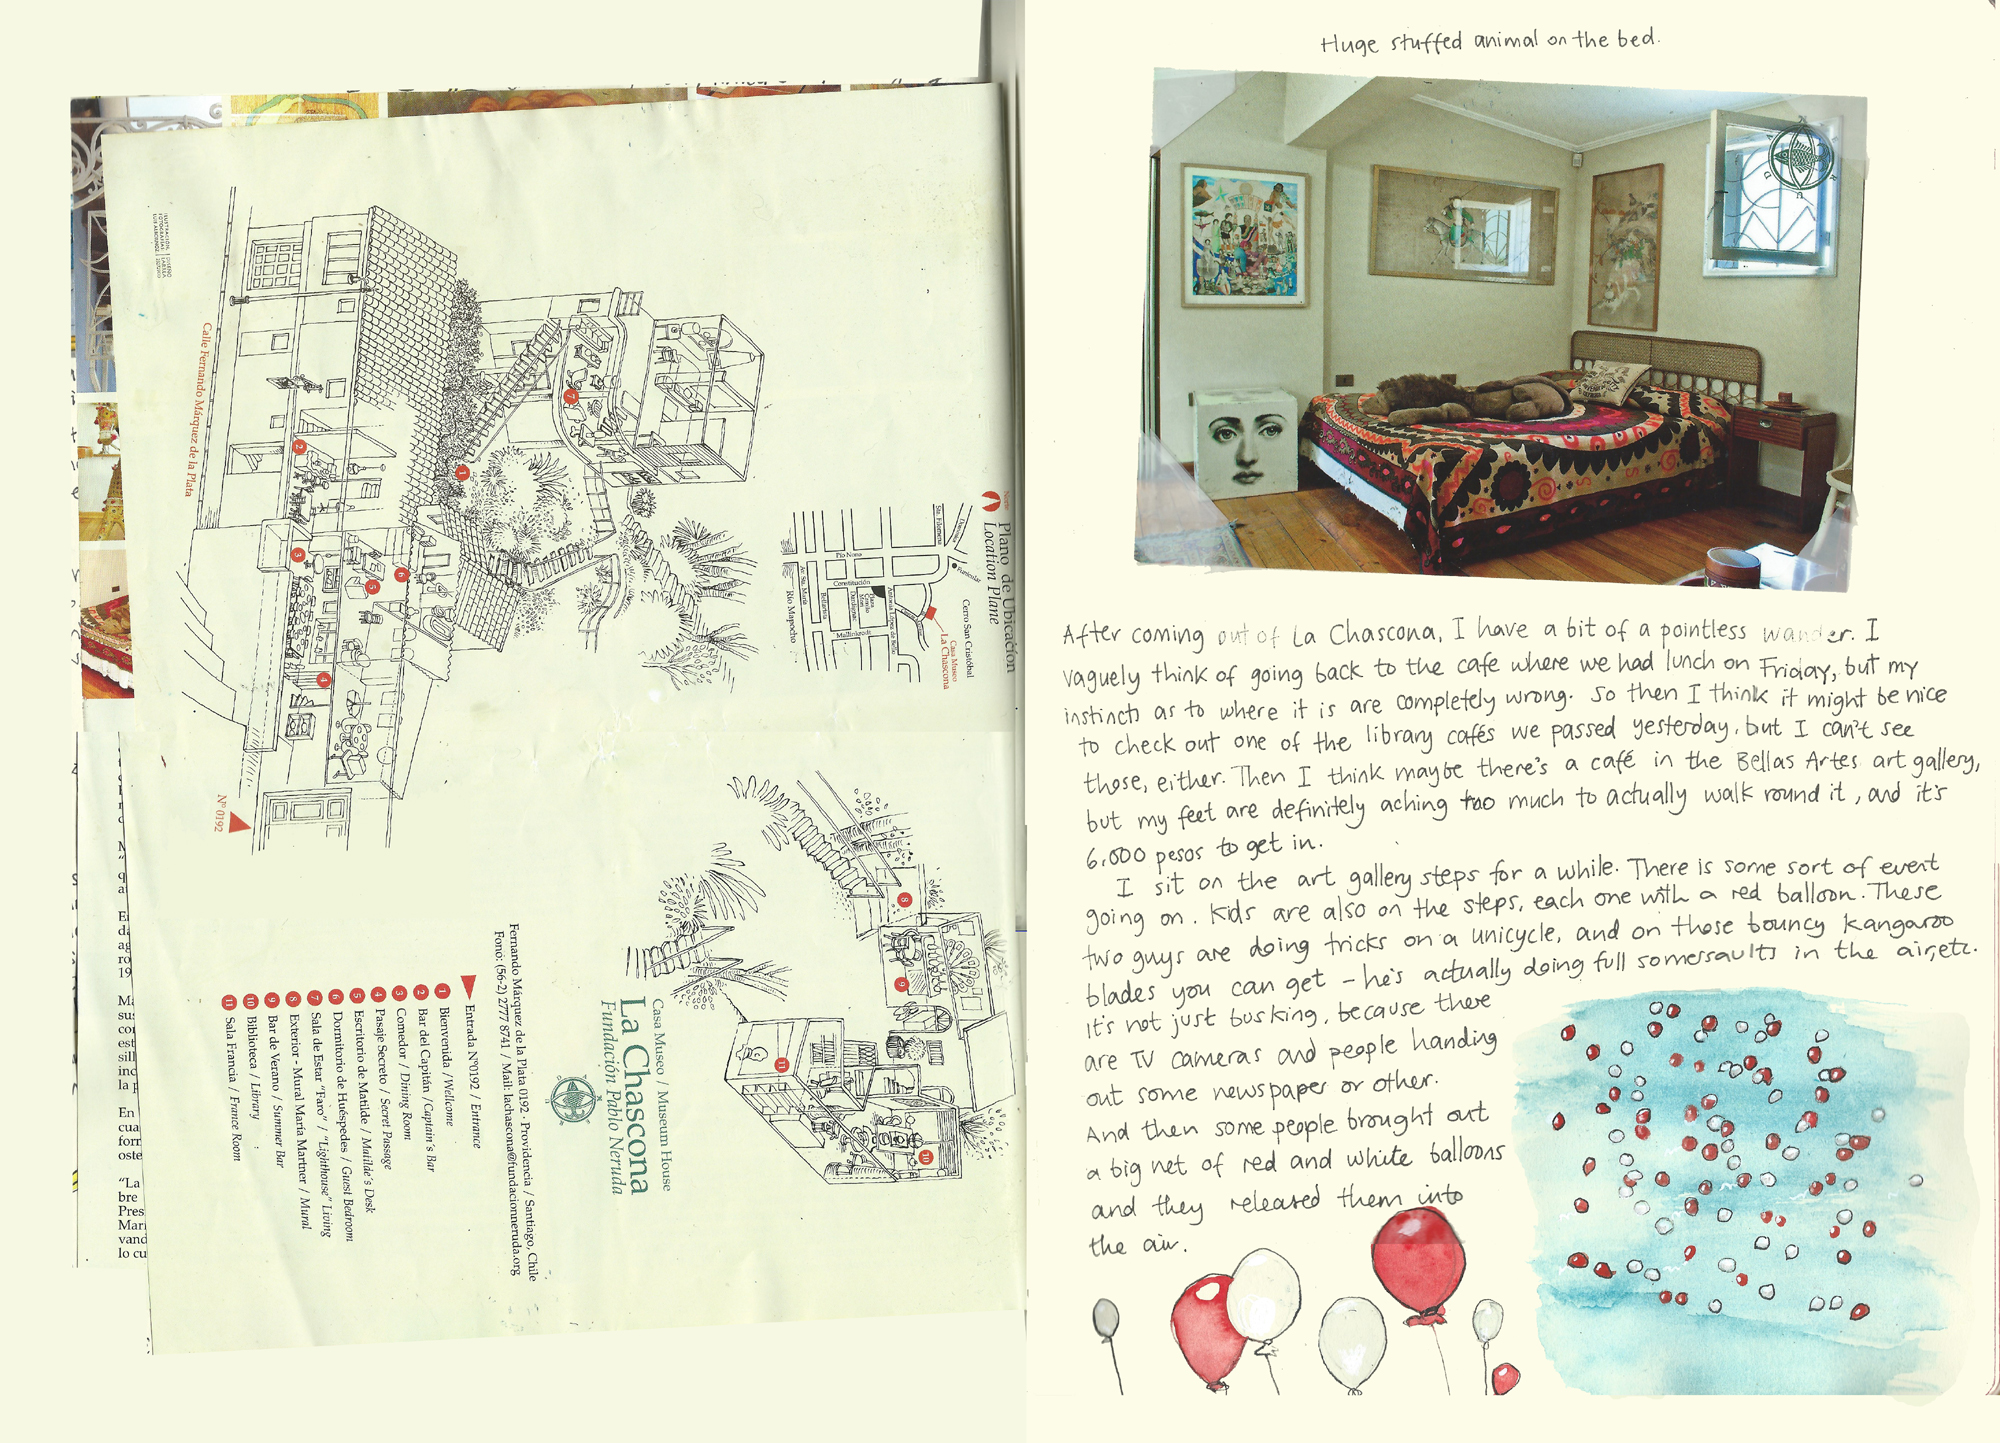 Plano de Ubicación
Location Plane
Cerro San Cristóbal
Casa Museo
La Chascona
Funicular
Pío Nono
Constitución
Mallinkrodt
Bellavista
Dardignac
Av. Sta. María
Río Mapocho
Calle Fernando Márquez de la Plata
Nº 0192
1
2
3
4
5
6
7
8
9
10
11
Casa Museo / Museum House
La Chascona
Fundación Pablo Neruda
Fernando Márquez de la Plata 0192 · Providencia / Santiago, Chile
Fono: (56-2) 2777 8741 / Mail: lachascona@fundacionneruda.org
Entrada Nº0192 / Entrance
1 Bienvenida /Wellcome
2 Bar del Capitán /Captain's Bar
3 Comedor / Dining Room
4 Pasaje Secreto / Secret Passage
5 Escritorio de Matilde / Matilde's Desk
6 Dormitorio de Huéspedes / Guest Bedroom
7 Sala de Estar "Faro" / "Lighthouse" Living
8 Exterior - Mural María Martner / Mural
9 Bar de Verano / Summer Bar
10 Biblioteca / Library
11 Sala Francia / France Room
Huge stuffed animal on the bed.
After coming out of La Chascona, I have a bit of a pointless wander. I
vaguely think of going back to the cafe where we had lunch on Friday, but my
instincts as to where it is are completely wrong. So then I think it might be nice
to check out one of the library cafés we passed yesterday, but I can't see
those, either. Then I think maybe there's a café in the Bellas Artes art gallery,
but my feet are definitely aching too much to actually walk round it, and it's
6,000 pesos to get in.
I sit on the art gallery steps for a while. There is some sort of event
going on. Kids are also on the steps, each one with a red balloon. These
two guys are doing tricks on a unicycle, and on those bouncy kangaroo
blades you can get – he's actually doing full somersaults in the air, etc.
It's not just busking, because there
are TV cameras and people handing
out some newspaper or other.
And then some people brought out
a big net of red and white balloons
and they released them into
the air.